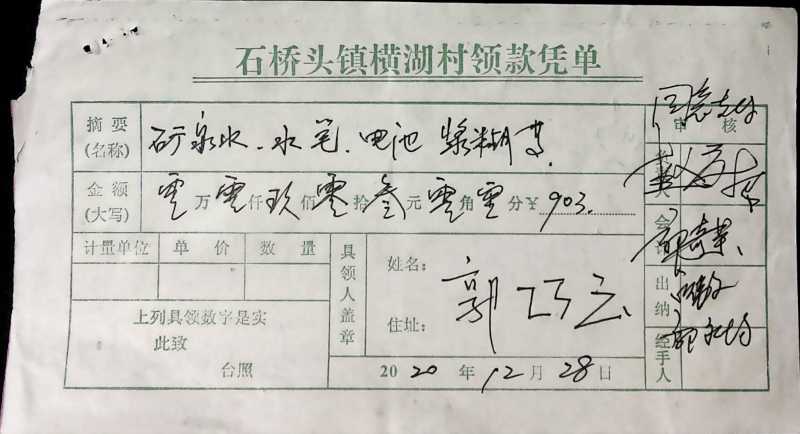 石桥头镇横湖村领款凭单
同意支付
摘要 矿泉水、水笔、电池 浆糊等 审核
(名称)
金额 零万零仟玖佰零拾叁元零角零分¥903.
(大写)
计量单位 单价 数量 会计
具领人盖章 姓名: 郭巧云
住址:
出纳
上列具领数字是实
此致
台照 2020年12月28日 经手人